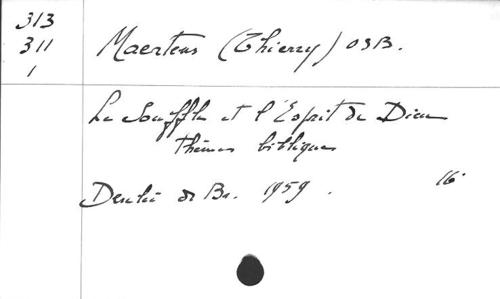 313
311
1
Maertens (Thierry) OSB.
Le Souffle et l'Esprit de Dieu
Thèmes bibliques
Desclée de Br. 1959.
16°